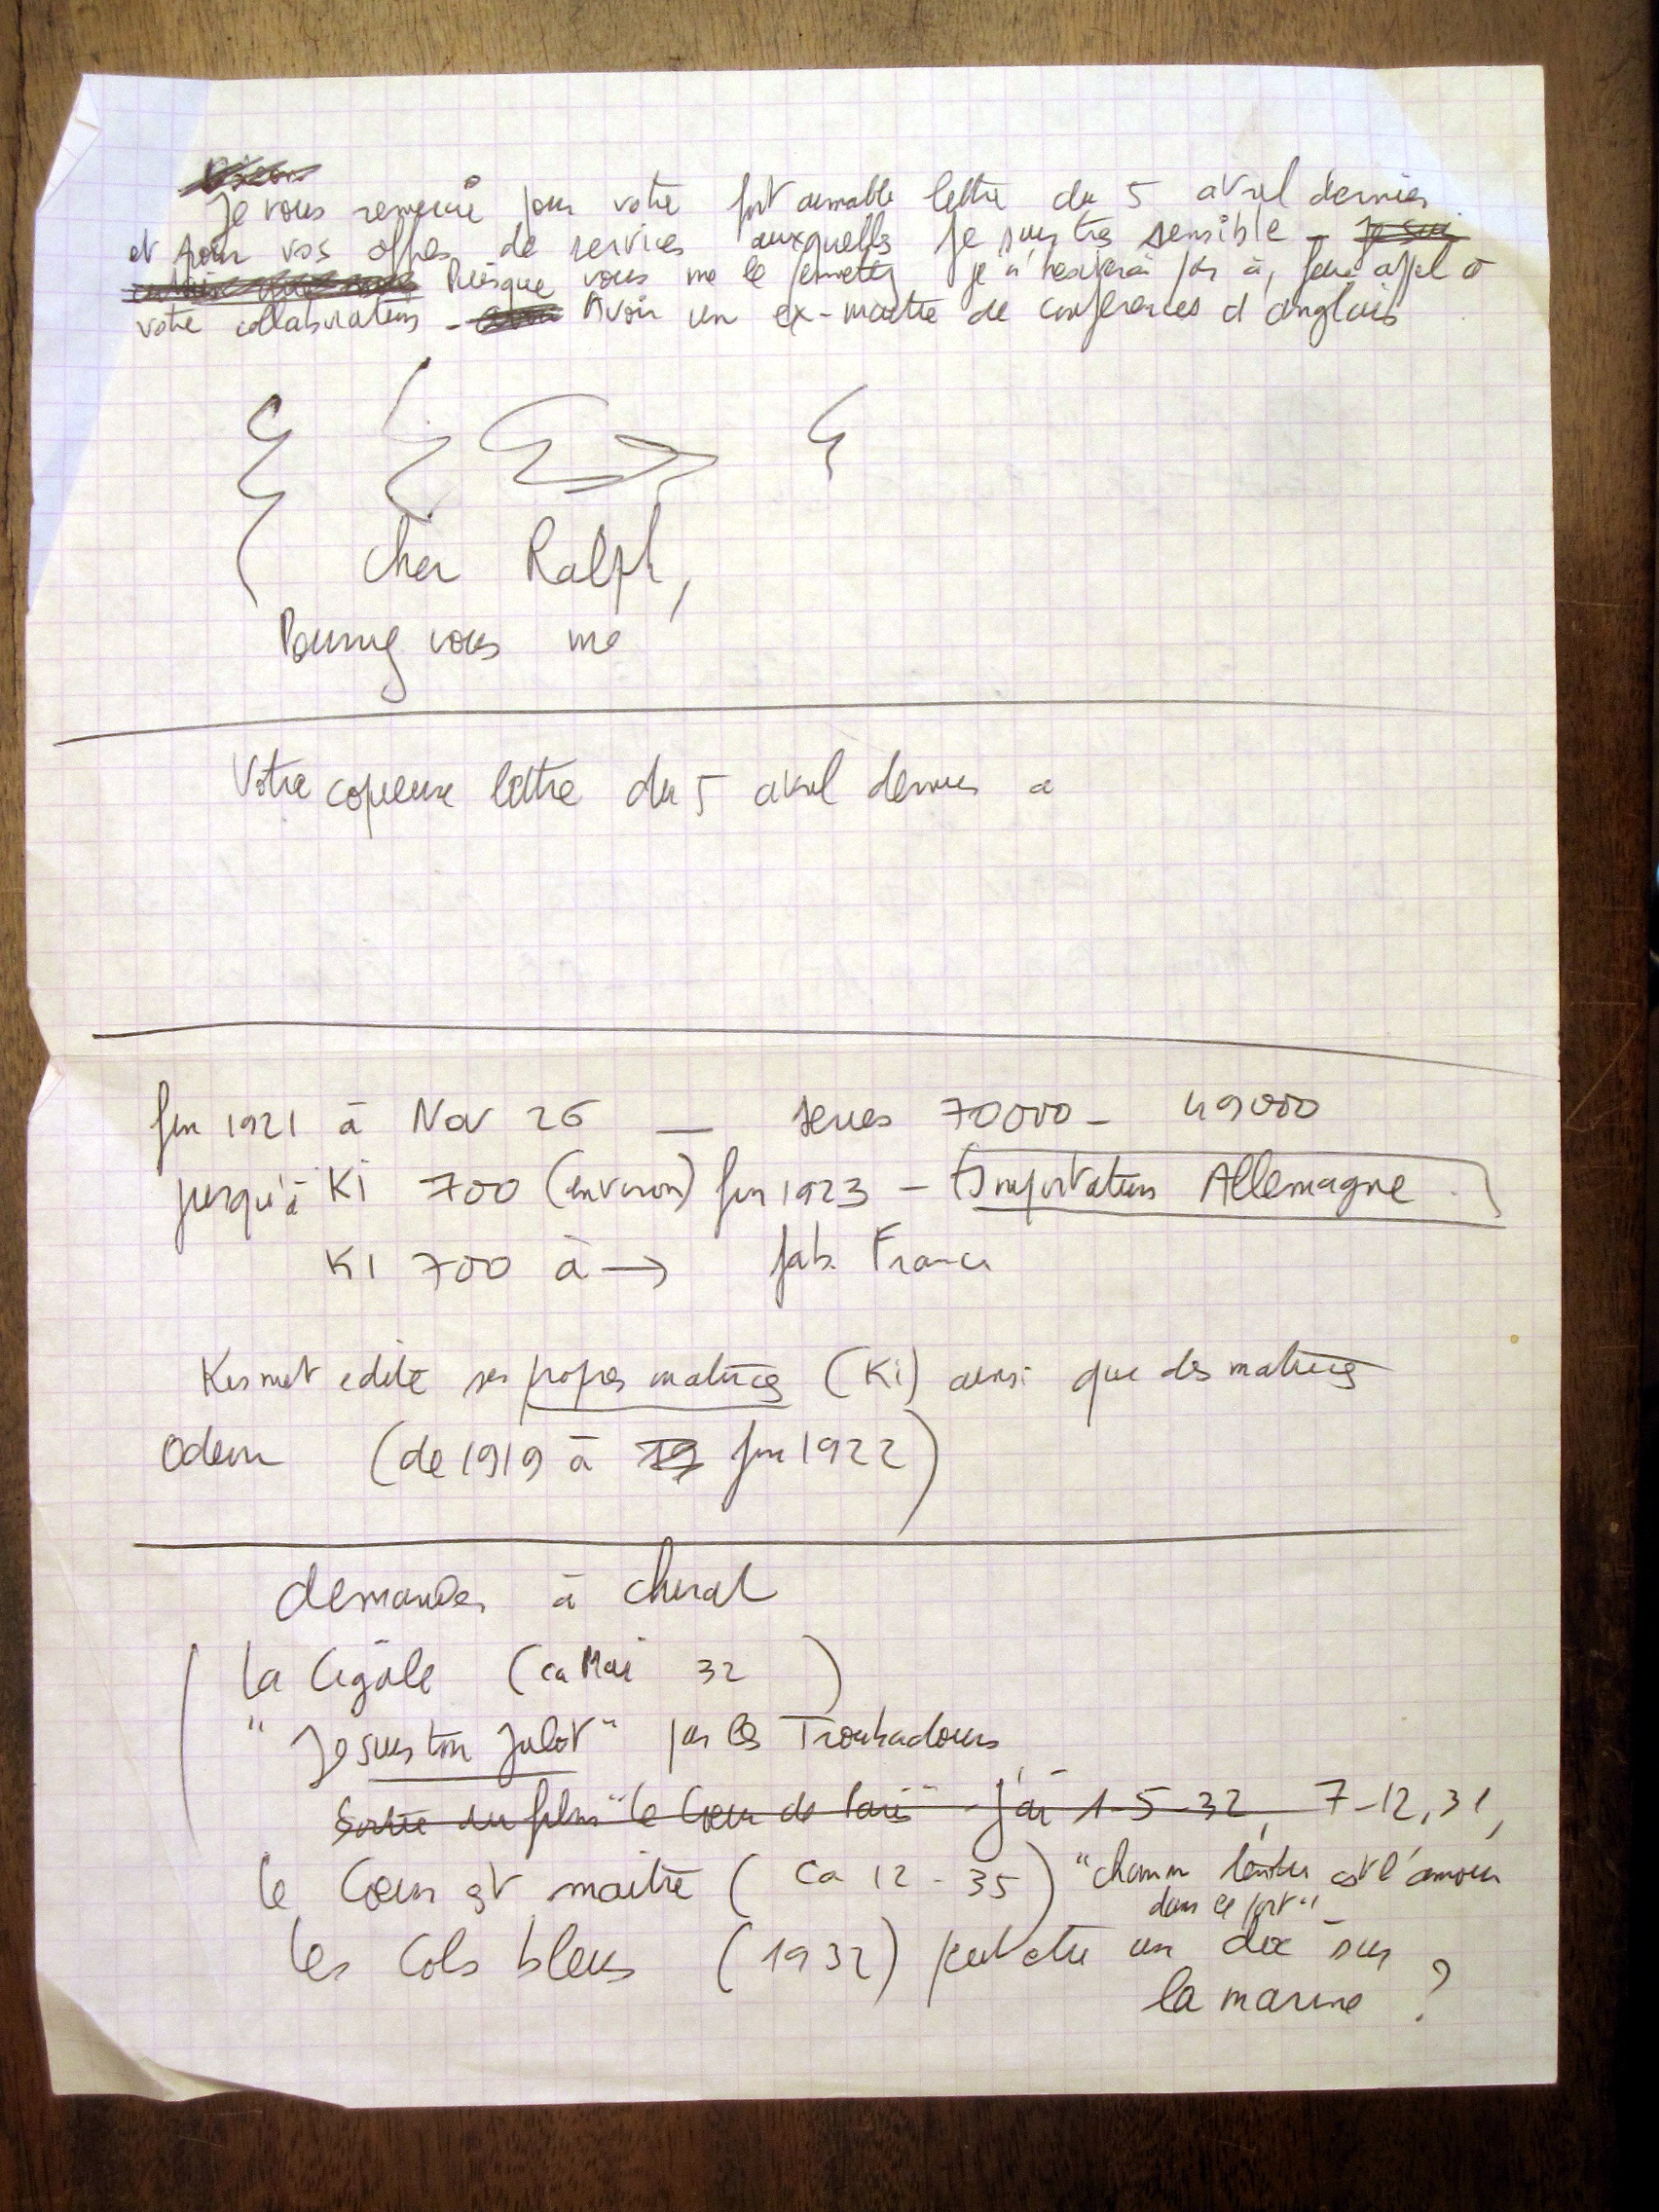 Je vous remercie pour votre fort aimable lettre du 5 avril dernier
et pour vos offres de services auxquelles je suis très sensible - Je suis
Puisque vous me le permettez je n'hésiterai pas à, faire appel à
votre collaboration - Avoir un ex-maitre de conférences d'anglais
Cher Ralph,
Pourriez vous me
Votre copieuse lettre du 5 avril dernier a
fin 1921 à Nov 26 — series 70000 - 49000
jusqu'à Ki 700 (environ) fin 1923 - Importation Allemagne
KI 700 à → fab. France
Kismet edite ses propres matrices (Ki) ainsi que des matrices
Odeon (de 1919 à 19 fin 1922)
demandes à
la Cigale (ca Mai 32)
"Je suis ton Julot" par les Troubadours
Sortie du film "le Coeur de Paris" - j'ai 1-5-32, 7-12, 31,
le Coeur est maitre (ca 12-35) "chacun est l'amour
dans ce port"
les Cols bleus (1932) peut etre un doc sur
la marine ?